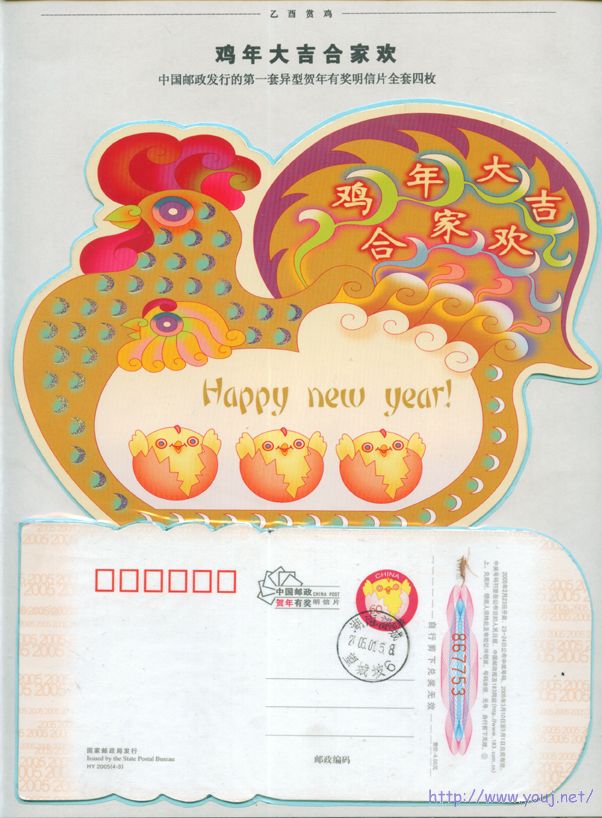 乙酉赏鸡
鸡年大吉合家欢
中国邮政发行的第一套异型贺年有奖明信片全套四枚
鸡年大吉
合家欢
Happy new year!
中国邮政 CHINA POST
贺年有奖明信片
CHINA
60
05.01.5.8
望城坡6
自行剪下兑奖无效
867753
售价:4.60元
国家邮政局发行
Issued by the State Postal Bureau
HY 2005(4-3)
邮政编码
2005 2005
http://www.youj.net/